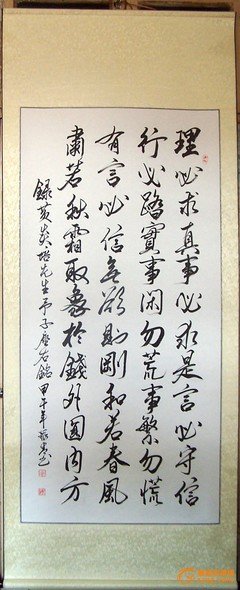 理必求真事必求是言必守信
行必踏實事閑勿荒事繁勿慌
有言必信無欲則剛和若春風
肅若秋霜取象於錢外圓内方
錄黄炎培先生予子座右銘甲午年书